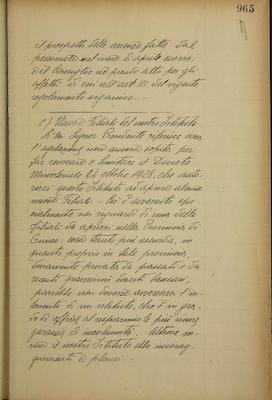 965
il prospetto delle assenze fatte dal
personale nel mese di aprile scorso,
ed il Consiglio ne prende atto per gli
effetti di cui all'art. 111 del vigente
regolamento organico. -
c) Nuove Filiali del nostro Istituto.
Il Signor Presidente riferisce
l'agitazione non ancora sopita per
far revocare o limitare il Decreto
Ministeriale 24 ottobre 1928, che auto-
rizzò questo Istituto ad aprire alcune
nuove Filiali. - Ciò è avvenuto spe-
cialmente nei riguardi di una delle
filiali da aprirsi nella Provincia di
Cuneo: cosa tanto più assurda, in
quanto proprio in tale provincia,
duramente provata da passati e da
recenti dissesti bancari,
parrebbe non dovesse avversarsi l'in-
cremento di un istituto, che è in gra-
do di offrire al risparmio le più sicure
garanzie di incolumità. Altrove in-
vece il nostro Istituto ebbe incorag-
giamenti e plausi. -